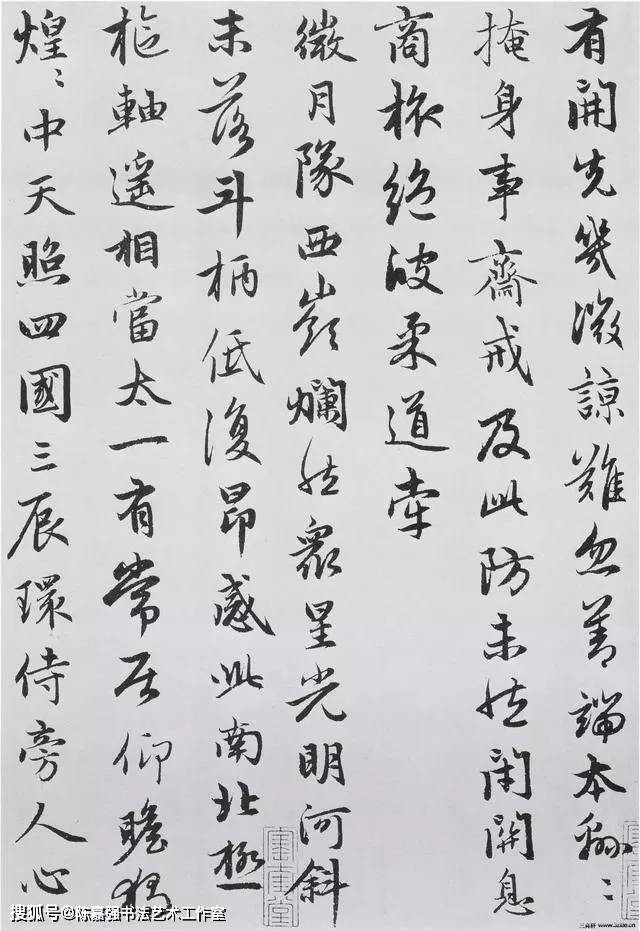 有開先幾微諒難忽善端本綿〻
掩身事齋戒及此防未然閉關息
商旅絶彼柔道牽
微月隊西嶺爛然衆星光明河斜
未落斗柄低復昂感此南北極
樞軸遥相當太一有常居仰瞻獨
煌〻中天照四國三辰環侍旁人心
搜狐号@陈嘉强书法艺术工作室
www.3zitie.cn